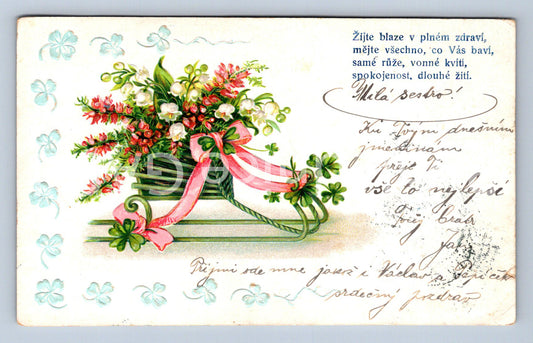 Žijte blaze v plném zdraví,
mějte všechno, co Vás baví,
samé růže, vonné kvítí,
spokojenost, dlouhé žití.
Milá sestro!
Ku Tvým dnešním
jmeninám
přeje Ti
vše to nejlepší
Tvůj bratr
Jar
Přijmi ode mne i Václav a
srdečný pozdrav